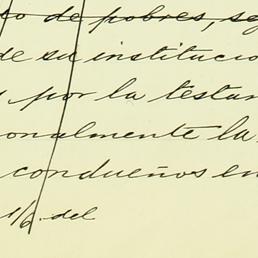 to de pobres, se
de su institucio
por la testam
onalmente la
condueños en
1/6 del